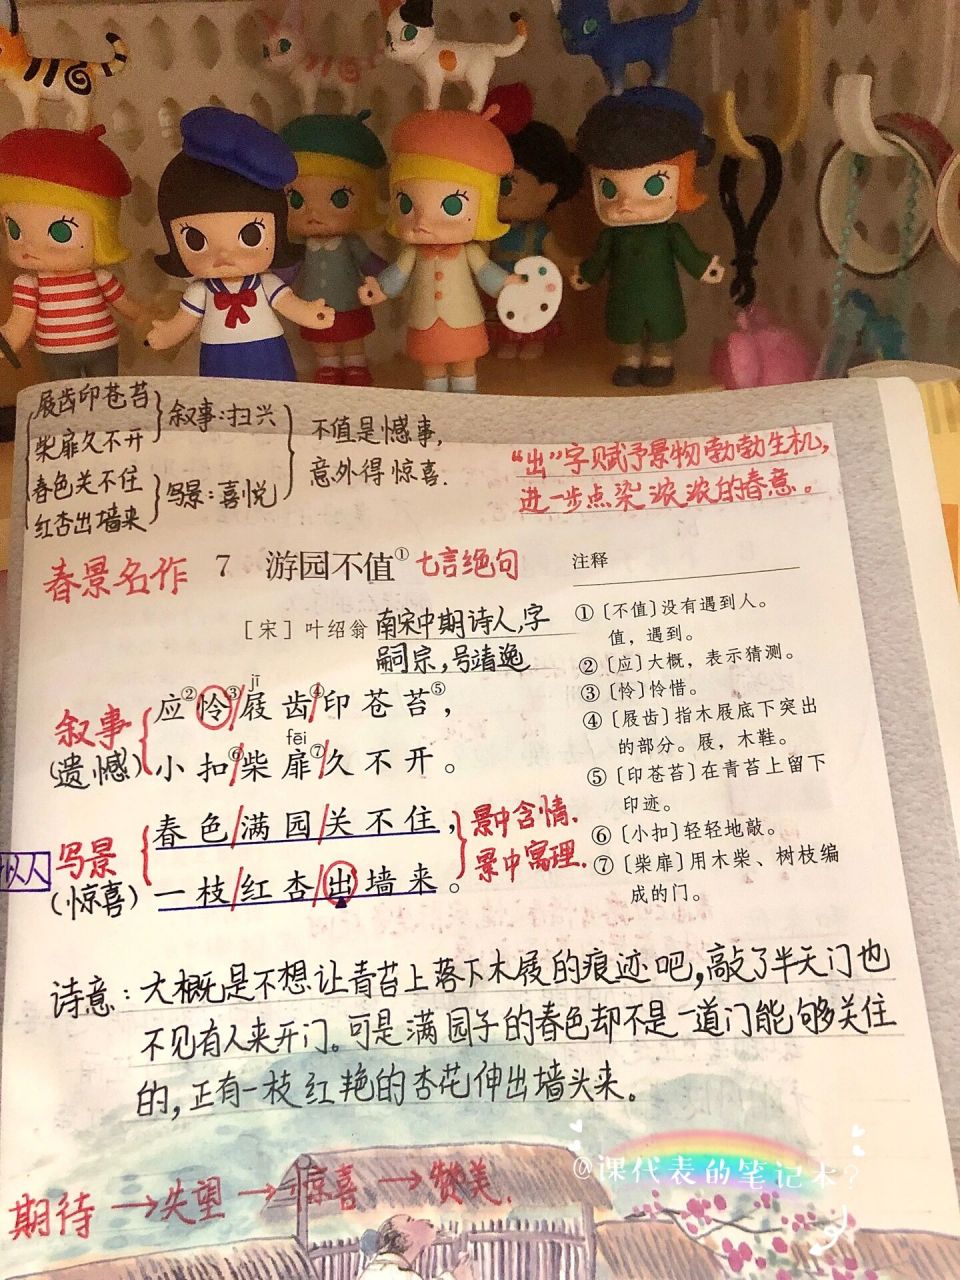 屐齿印苍苔
柴扉久不开
春色关不住
红杏出墙来
叙事:扫兴
写景:喜悦
不值是憾事,
意外得惊喜.
“出”字赋予景物勃勃生机,
进一步点染浓浓的春意。
春景名作
7 游园不值① 七言绝句
[宋] 叶绍翁 南宋中期诗人,字
嗣宗,号靖逸
叙事
(遗憾)
jī
应②怜③/屐齿④/印苍苔⑤,
fēi
小扣⑥/柴扉⑦/久不开。
拟人
写景
(惊喜)
春色/满园/关不住,
一枝/红杏/出墙来。
景中含情.
景中寓理.
注释
①〔不值〕没有遇到人。
值,遇到。
②〔应〕大概,表示猜测。
③〔怜〕怜惜。
④〔屐齿〕指木屐底下突出
的部分。屐,木鞋。
⑤〔印苍苔〕在青苔上留下
印迹。
⑥〔小扣〕轻轻地敲。
⑦〔柴扉〕用木柴、树枝编
成的门。
诗意:大概是不想让青苔上落下木屐的痕迹吧,敲了半天门也
不见有人来开门。可是满园子的春色却不是一道门能够关住
的,正有一枝红艳的杏花伸出墙头来。
期待→失望→惊喜→赞美.
@课代表的笔记本?